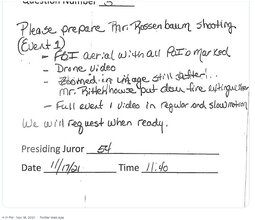 Question Number 3
Please prepare Mr. Rossenbaum shooting.
(Event 1)
- FBI aerial with all POIs marked
- Drone video
- Zoomed-in image still after
Mr. Rittenhouse put down fire extinguisher
- Full event 1 video in regular and slow motion
We will request when ready.
Presiding Juror 54
Date 11/17/21 Time 11:40